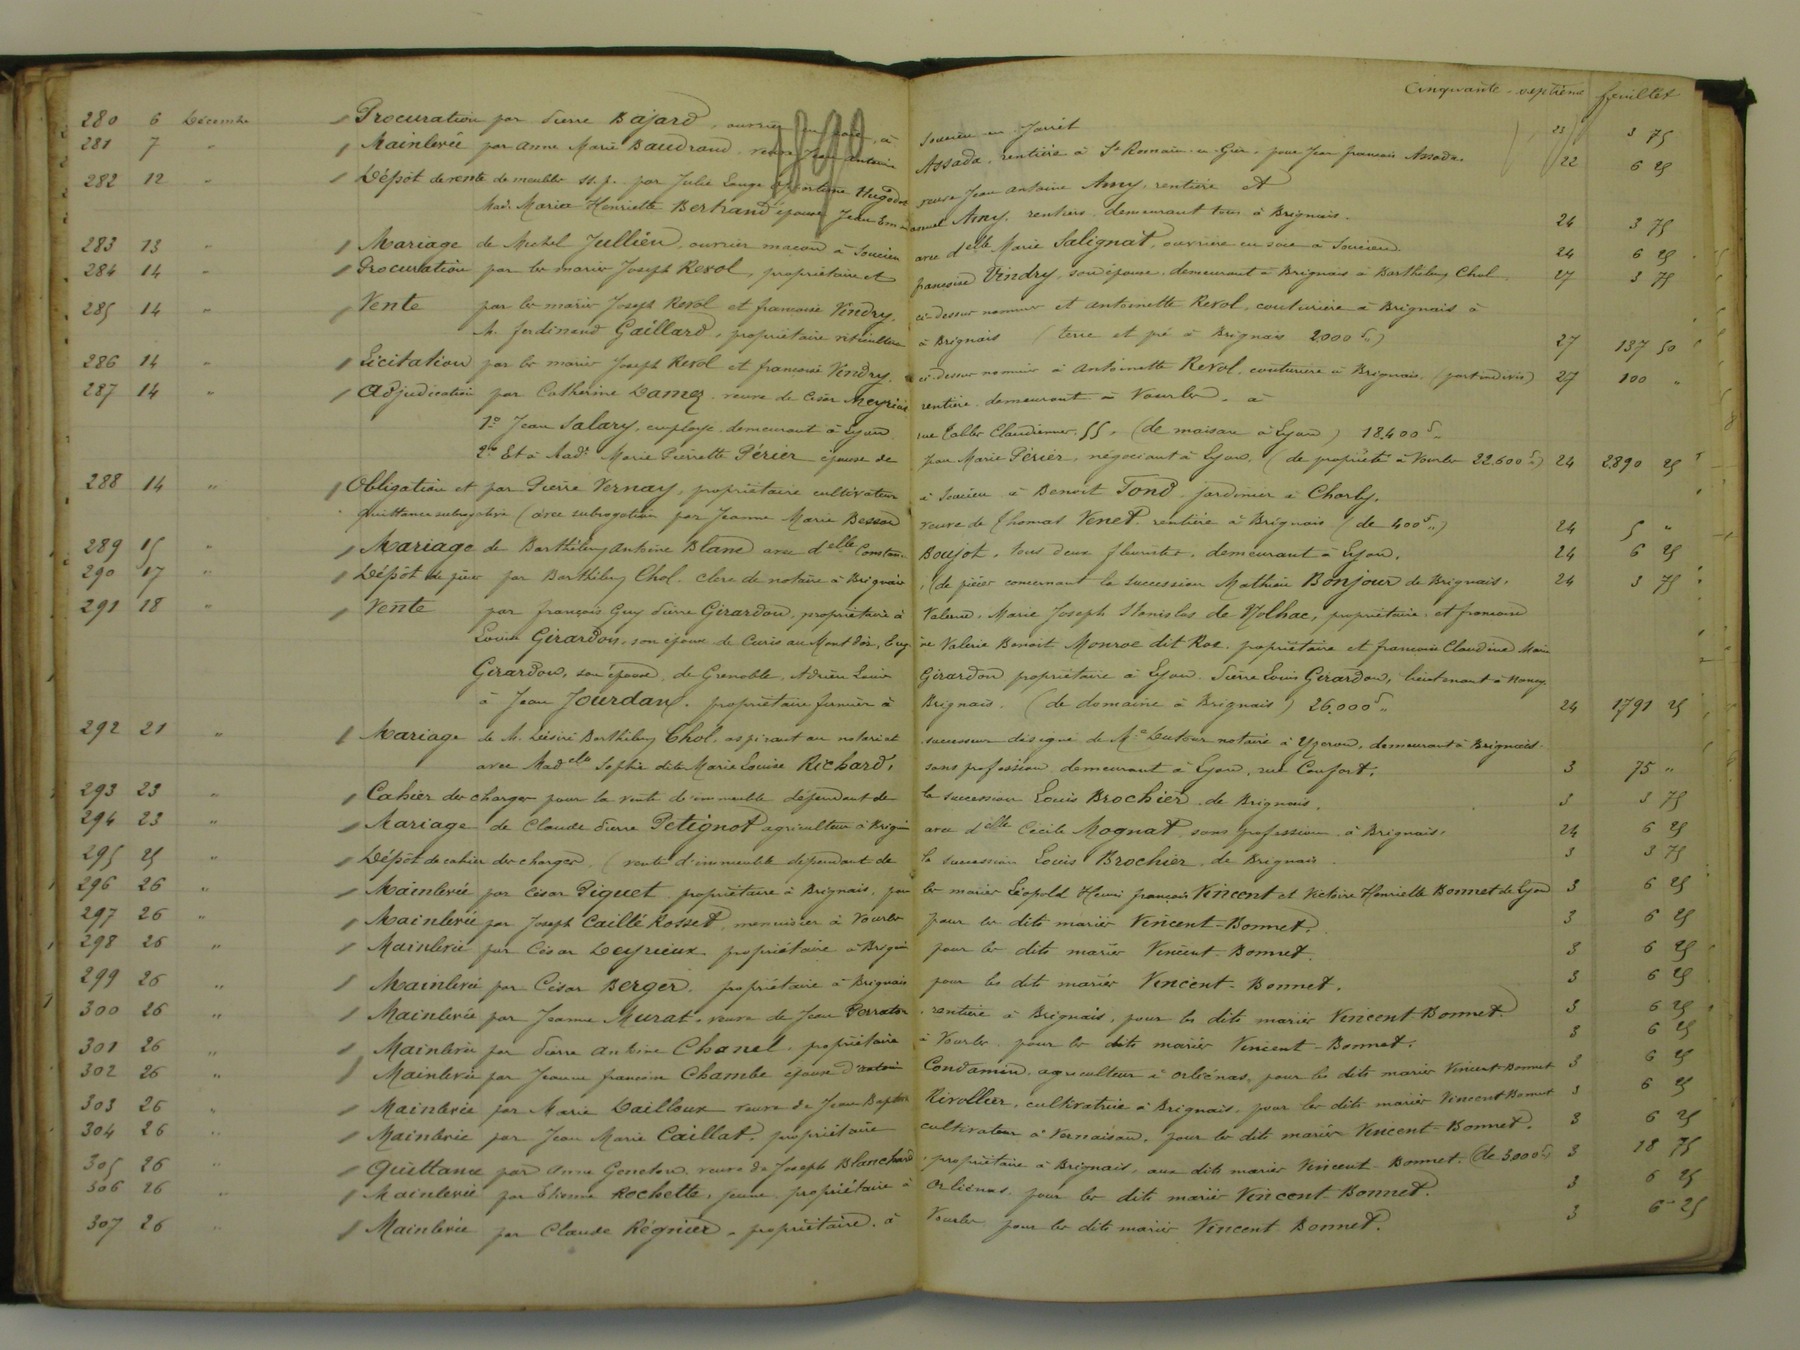 Cinquante-septième feuillet
1890
280 6 Décembre Procuration par Pierre Bajard, ouvrier en soie, à Soucieu en Jarrêt 23 3 75
281 7 " Mainlevée par Anne Marie Baudrand veuve Jean Antoine Assada, rentière à St Romain en Gier, pour Jean françois Assada. 22 6 25
282 12 " Dépôt de vente de meubles ss.p. par Julie Hugodot veuve Jean Antoine Amy, rentière et
Made Maria Henriette Bertrand épouse Jean Emmanuel Amy, rentiers, demeurant tous à Brignais. 24 3 75
283 13 " Mariage de Michel Jullien, ouvrier maçon à Soucieu avec delle Marie Salignat, ouvrière en soie à Soucieu. 24 6 25
284 14 " Procuration par les mariés Joseph Revol, propriétaire et françoise Vindry, son épouse, demeurant à Brignais à Barthélemy Chol 27 3 75
285 14 " Vente par les mariés Joseph Revol et françoise Vindry, ci-dessus nommés et Antoinette Revol, couturière à Brignais à
M. ferdinand Gaillard, propriétaire viticulteur à Brignais (terre et pré à Brignais 2,000f) 27 137 50
286 14 " Licitation par les mariés Joseph Revol et françoise Vindry, ci-dessus nommés à Antoinette Revol, couturière à Brignais (part indivis) 27 100 "
287 14 " Adjudication par Catherine Damez veuve de César Meyrieu rentière demeurant à Vourles, à
1º Jean Salary, employé demeurant à Lyon rue Tables Claudiennes 55, (de maison à Lyon) 18,400f "
2º Et à Made Marie Pierrette Périer épouse de Jean Marie Périer, négociant à Lyon, (de propriété à Vourles 22,600f) 24 2890 25
288 14 " Obligation et par Pierre Vernay, propriétaire cultivateur à Soucieu à Benoît Tond jardinier à Charly,
quittance subrogative (avec subrogation par Jeanne Marie Besson veuve de Thomas Venet rentière à Brignais (de 400f ") 24 5 "
289 15 " Mariage de Barthélemy Antoine Blanc avec delle Constance Boujot, tous deux fleuristes, demeurant à Lyon. 24 6 25
290 17 " Dépôt de pièces par Barthélemy Chol, clerc de notaire à Brignais, (de pièces concernant la succession Mathieu Bonjour de Brignais. 24 3 75
291 18 " Vente par françois Guy Pierre Girardon, propriétaire à Valence, Marie Joseph Stanislas de Nolhac, propriétaire et françoise
Louise Girardon, son épouse de Curis au Mont d'or, Eugène Valérie Benoit Monroe dit Roe propriétaire et françoise Claudine Marie
Girardon, son épouse, de Grenoble, Adrien Louis Girardon propriétaire à Lyon Pierre Louis Girardon, lieutenant à Nancy
à Jean Jourdan, propriétaire fermier à Brignais. (de domaine à Brignais) 26,000f " 24 1791 25
292 21 " Mariage de M. Désiré Barthélemy Chol, aspirant au notariat successeur désigné de Me Dutour notaire à Yzeron, demeurant à Brignais
avec Madelle Sophie dite Marie Louise Richard, sans profession demeurant à Lyon, rue Confort. 3 75 "
293 23 " Cahier des charges pour la vente d'immeuble dépendant de la succession Louis Brochier de Brignais. 3 3 75
294 23 " Mariage de Claude Pierre Petignot agriculteur à Brignais avec delle Cécile Mognat sans profession à Brignais. 24 6 25
295 25 " Dépôt de cahier des charges (vente d'immeuble dépendant de la succession Louis Brochier, de Brignais. 3 3 75
296 26 " Mainlevée par César Piquet propriétaire à Brignais, pour les mariés Léopold Henri françois Vincent et Victoire Henriette Bonnet de Lyon 3 6 25
297 26 " Mainlevée par Joseph Caillé Rosset, menuisier à Vourles pour les dits mariés Vincent-Bonnet. 3 6 25
298 26 " Mainlevée par César Deyrieux propriétaire à Brignais pour les dits mariés Vincent-Bonnet 3 6 25
299 26 " Mainlevée par César Berger, propriétaire à Brignais pour les dits mariés Vincent-Bonnet. 3 6 25
300 26 " Mainlevée par Jeanne Murat, veuve de Jean Perraton, rentière à Brignais, pour les dits mariés Vincent Bonnet. 3 6 25
301 26 " Mainlevée par Pierre Antoine Chanel, propriétaire à Vourles pour les dits mariés Vincent-Bonnet. 3 6 25
302 26 " Mainlevée par Jeanne françoise Chambe épouse d'Antoine Condamin, agriculteur à Orliénas, pour les dits mariés Vincent-Bonnet 3 6 25
303 26 " Mainlevée par Marie Dailloux veuve de Jean Baptiste Rivollier, cultivatrice à Brignais, pour les dits mariés Vincent Bonnet 3 6 25
304 26 " Mainlevée par Jean Marie Caillat, propriétaire cultivateur à Vernaison, pour les dits mariés Vincent-Bonnet. 3 6 25
305 26 " Quittance par Anne Goneton veuve de Joseph Blanchard, propriétaire à Brignais, aux dits mariés Vincent-Bonnet. (de 3,000f) 3 18 75
306 26 " Mainlevée par Etienne Rochette, jeune, propriétaire à Orliénas, pour les dits mariés Vincent Bonnet. 3 6 25
307 26 " Mainlevée par Claude Régnier, propriétaire, à Vourles pour les dits mariés Vincent Bonnet. 3 6 25